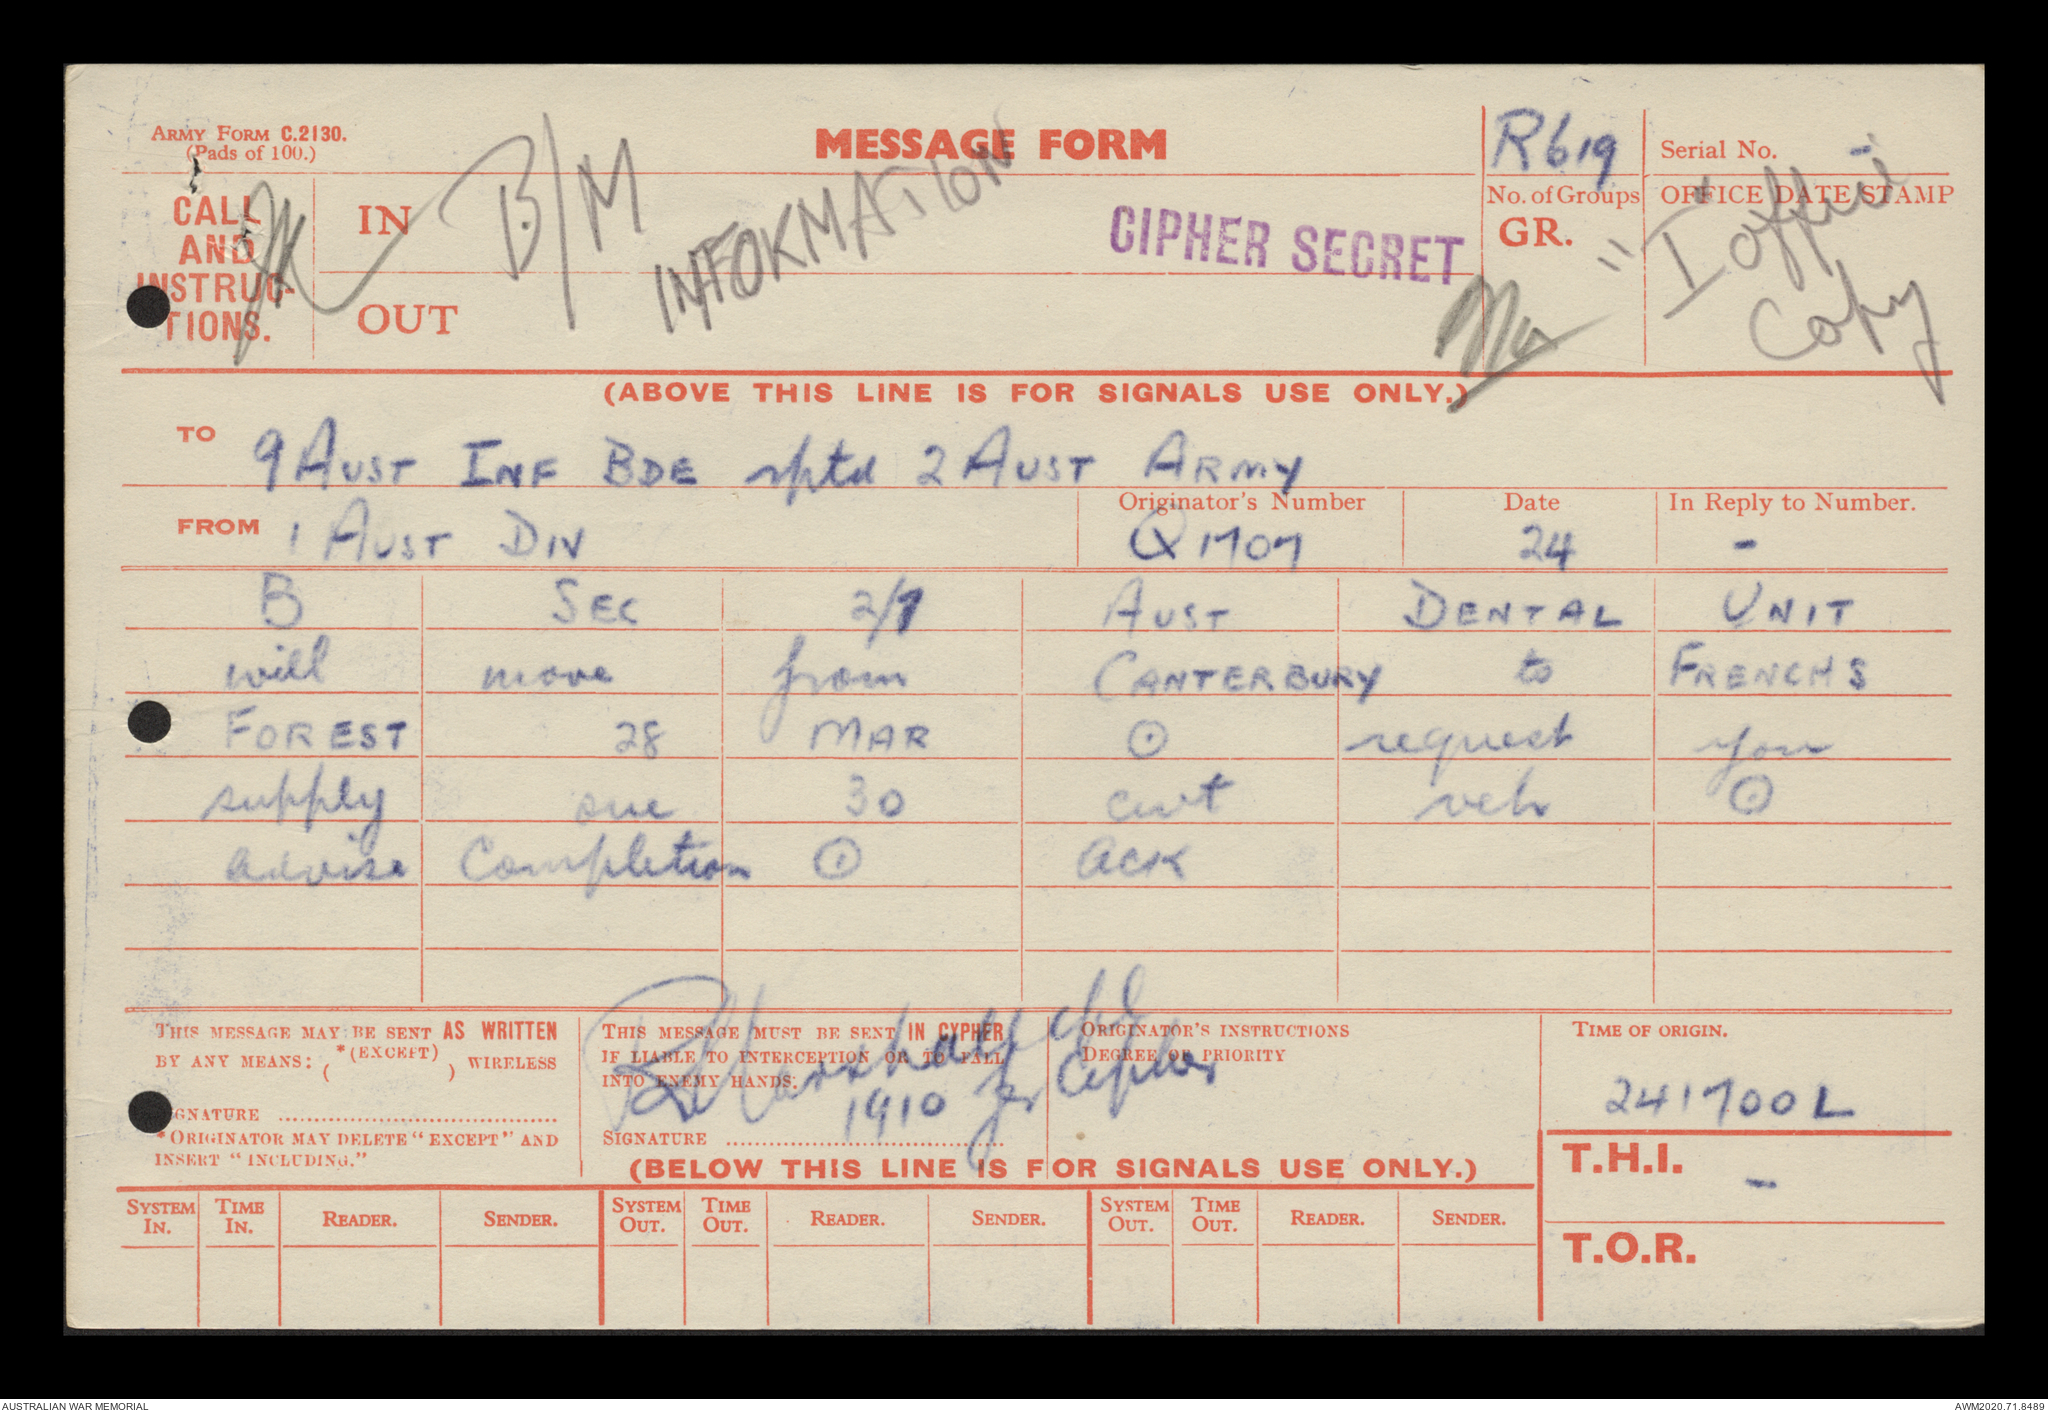 ARMY FORM C.2130.
(Pads of 100.)
MESSAGE FORM
R619
Serial No. -
CALL AND INSTRUC-TIONS.
IN
B/M
INFORMATION
CIPHER SECRET
No. of Groups
GR.
OFFICE DATE STAMP
"I" office
Copy
OUT
(ABOVE THIS LINE IS FOR SIGNALS USE ONLY.)
TO 9 AUST INF BDE rptd 2 AUST ARMY
FROM 1 AUST DIV
Originator's Number Q1707
Date 24
In Reply to Number. -
B SEC 2/7 AUST DENTAL UNIT
will move from CANTERBURY to FRENCHS
FOREST 28 MAR ⊙ request you
supply one 30 cwt veh ⊙
advise completion ⊙ ack
THIS MESSAGE MAY BE SENT AS WRITTEN
BY ANY MEANS: *(EXCEPT) ( ) WIRELESS
SIGNATURE
*ORIGINATOR MAY DELETE "EXCEPT" AND
INSERT "INCLUDING."
THIS MESSAGE MUST BE SENT IN CYPHER
IF LIABLE TO INTERCEPTION OR TO FALL
INTO ENEMY HANDS.
1910 for Cipher
SIGNATURE
ORIGINATOR'S INSTRUCTIONS
DEGREE OF PRIORITY
TIME OF ORIGIN.
241700L
(BELOW THIS LINE IS FOR SIGNALS USE ONLY.)
T.H.I. -
SYSTEM IN. TIME IN. READER. SENDER. SYSTEM OUT. TIME OUT. READER. SENDER. SYSTEM OUT. TIME OUT. READER. SENDER.
T.O.R.
AUSTRALIAN WAR MEMORIAL
AWM2020.71.8489